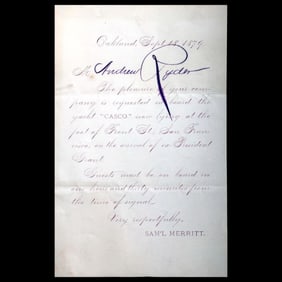 Oakland, Sept. 18, 1879.
Mr. Andrew Ryder
The pleasure of your com-
pany is requested on board the
yacht "CASCO," now lying at the
foot of Front St., San Fran-
cisco, on the arrival of ex-President
Grant.
Guests must be on board in
one hour and thirty minutes from
the time of signal.
Very respectfully,
SAM'L MERRITT.